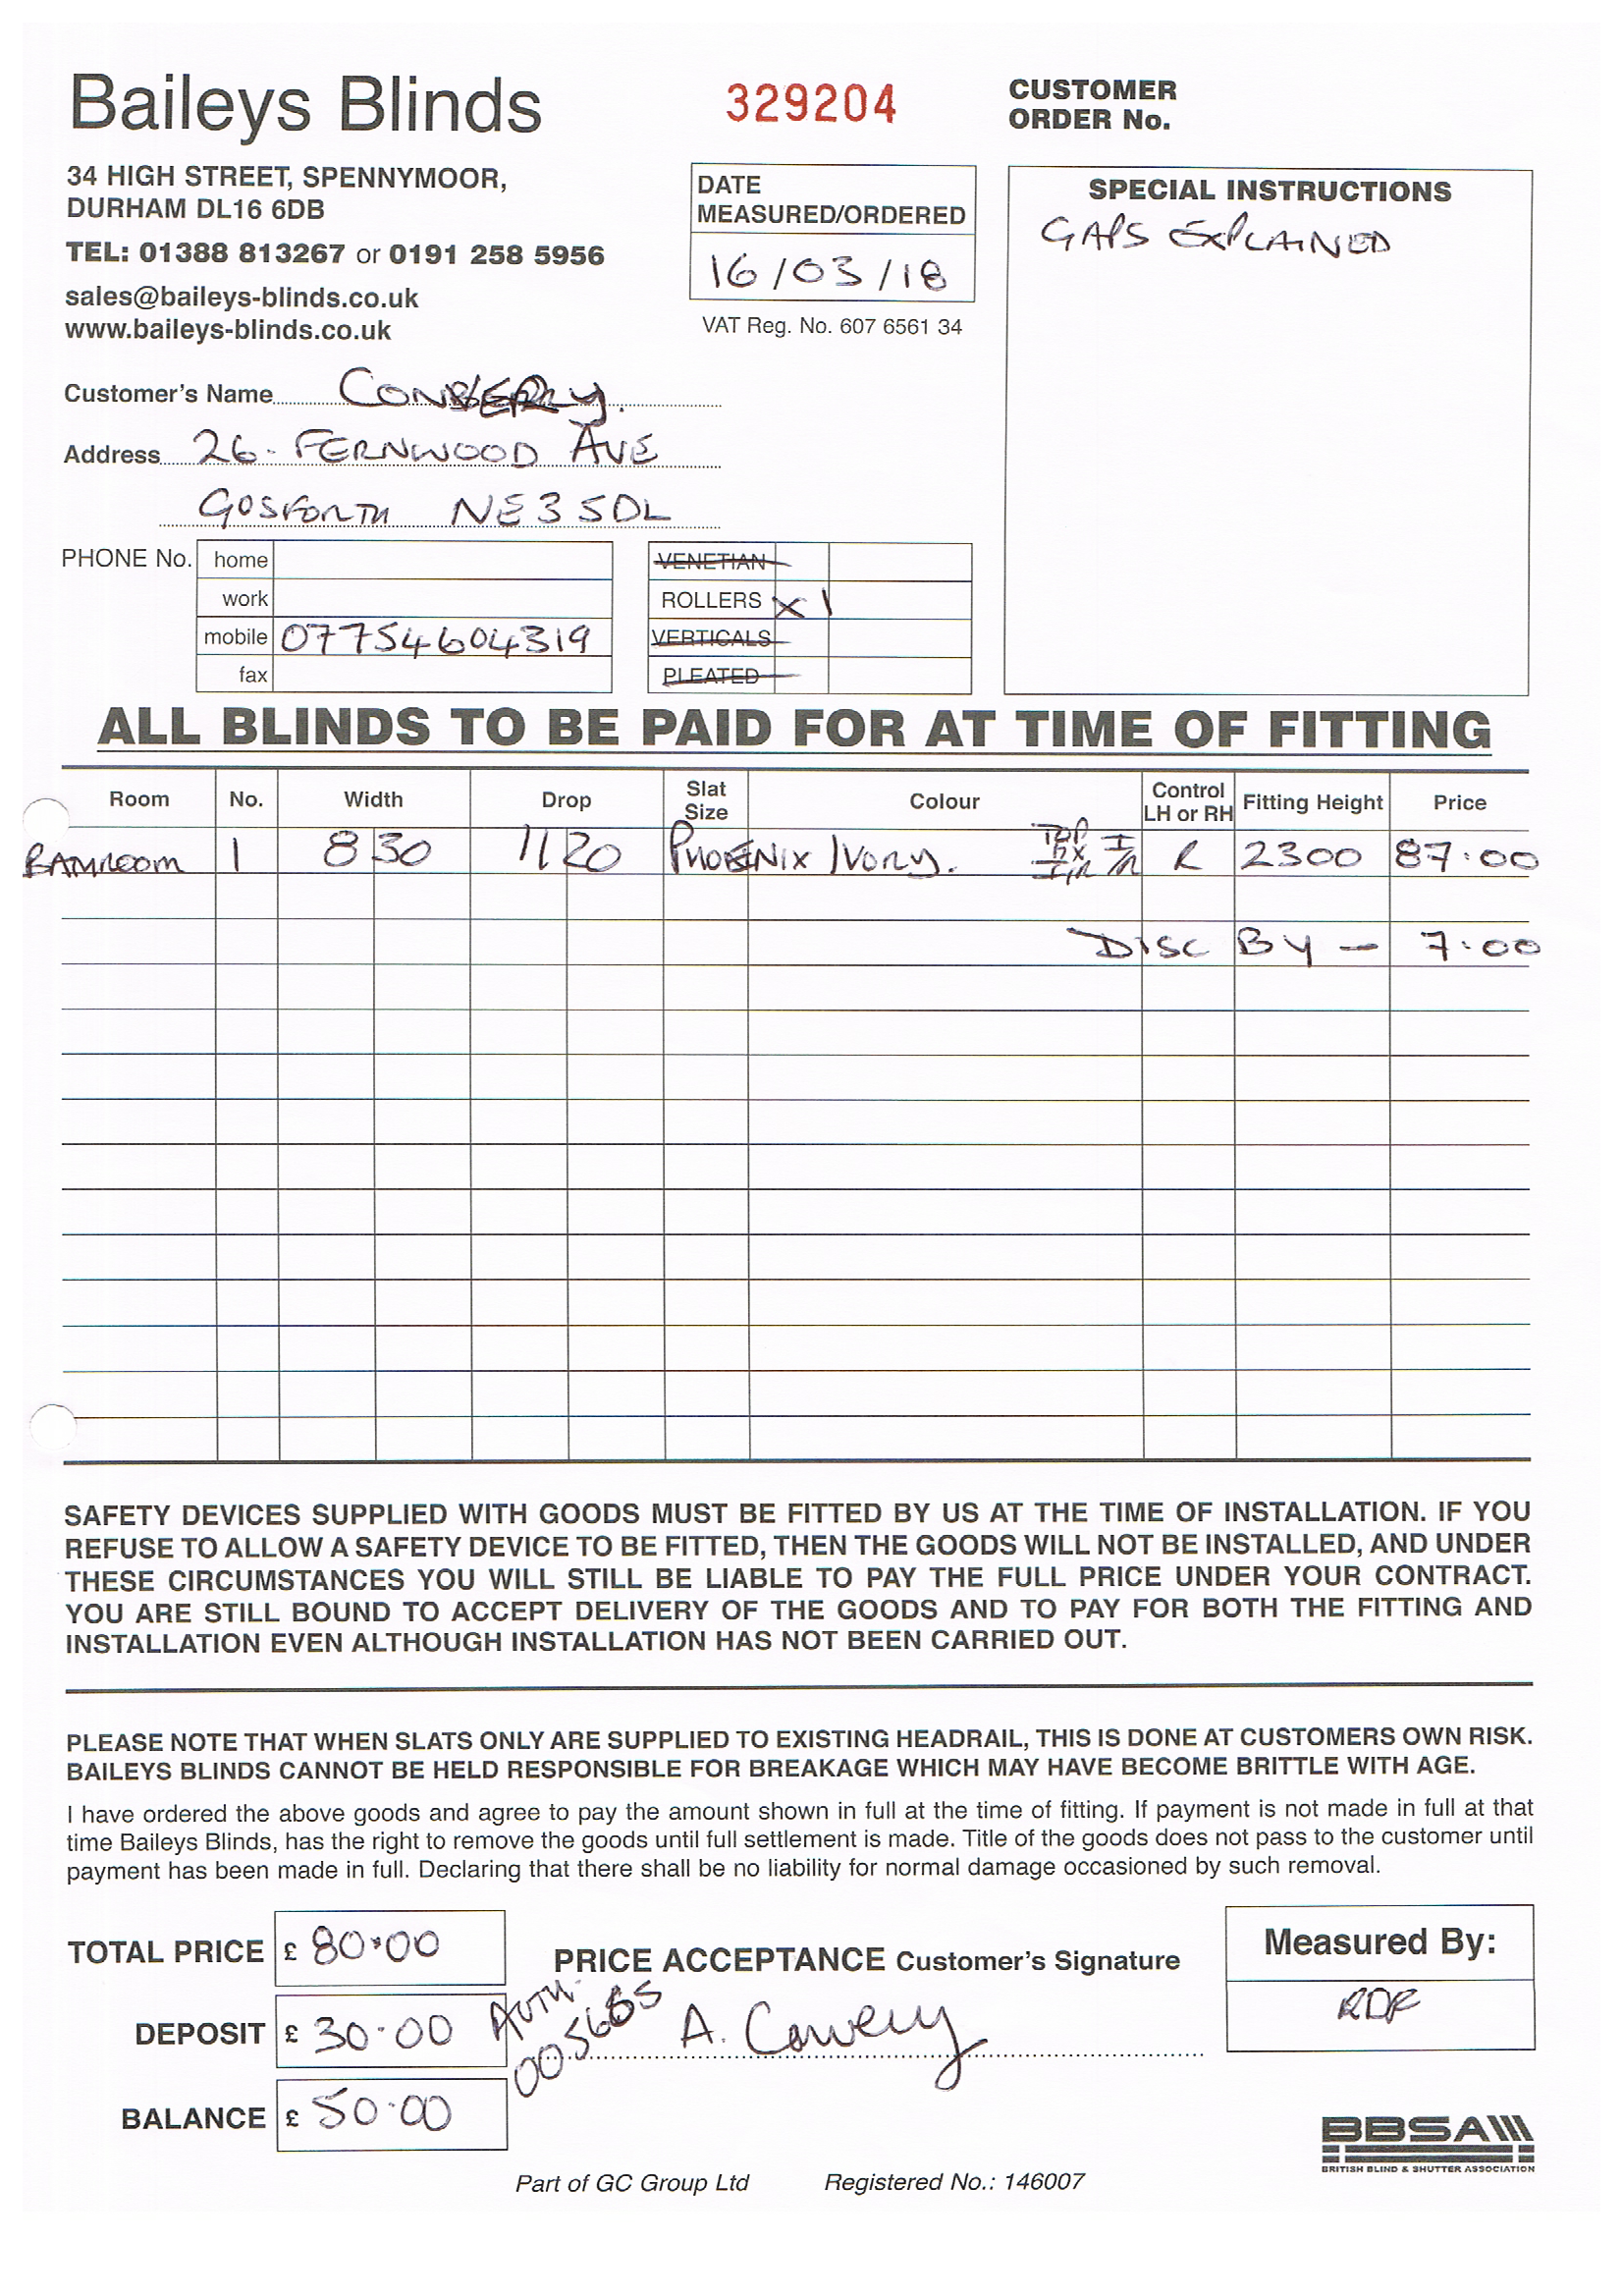 Baileys Blinds
329204
CUSTOMER
ORDER No.
34 HIGH STREET, SPENNYMOOR,
DURHAM DL16 6DB
TEL: 01388 813267 or 0191 258 5956
sales@baileys-blinds.co.uk
www.baileys-blinds.co.uk
DATE
MEASURED/ORDERED
16/03/18
VAT Reg. No. 607 6561 34
SPECIAL INSTRUCTIONS
GAPS EXPLAINED
Customer's Name
Address 26. FERNWOOD AVE
GOSFORTH NE3 5DL
PHONE No. home
work
mobile 07754604319
fax
VENETIAN
ROLLERS X 1
VERTICALS
PLEATED
ALL BLINDS TO BE PAID FOR AT TIME OF FITTING
Room No. Width Drop Slat Size Colour Control LH or RH Fitting Height Price
BATHROOM 1 830 1120 PHOENIX IVORY. TOP R 2300 87.00
DISC BY - 7.00
SAFETY DEVICES SUPPLIED WITH GOODS MUST BE FITTED BY US AT THE TIME OF INSTALLATION. IF YOU
REFUSE TO ALLOW A SAFETY DEVICE TO BE FITTED, THEN THE GOODS WILL NOT BE INSTALLED, AND UNDER
THESE CIRCUMSTANCES YOU WILL STILL BE LIABLE TO PAY THE FULL PRICE UNDER YOUR CONTRACT.
YOU ARE STILL BOUND TO ACCEPT DELIVERY OF THE GOODS AND TO PAY FOR BOTH THE FITTING AND
INSTALLATION EVEN ALTHOUGH INSTALLATION HAS NOT BEEN CARRIED OUT.
PLEASE NOTE THAT WHEN SLATS ONLY ARE SUPPLIED TO EXISTING HEADRAIL, THIS IS DONE AT CUSTOMERS OWN RISK.
BAILEYS BLINDS CANNOT BE HELD RESPONSIBLE FOR BREAKAGE WHICH MAY HAVE BECOME BRITTLE WITH AGE.
I have ordered the above goods and agree to pay the amount shown in full at the time of fitting. If payment is not made in full at that
time Baileys Blinds, has the right to remove the goods until full settlement is made. Title of the goods does not pass to the customer until
payment has been made in full. Declaring that there shall be no liability for normal damage occasioned by such removal.
TOTAL PRICE £ 80.00
PRICE ACCEPTANCE Customer's Signature
Measured By:
RDF
DEPOSIT £ 30.00
AUTH.
005685
A.
BALANCE £ 50.00
BBSA
BRITISH BLIND & SHUTTER ASSOCIATION
Part of GC Group Ltd Registered No.: 146007